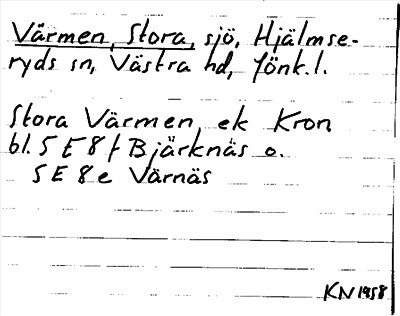 Värmen, Stora, sjö, Hjälmse-
ryds sn, Västra hd, Jönk.l.
Stora Värmen ek Kron
bl. 5 E 8 f Bjärknäs o.
5 E 8 e Värnäs
KN 1958